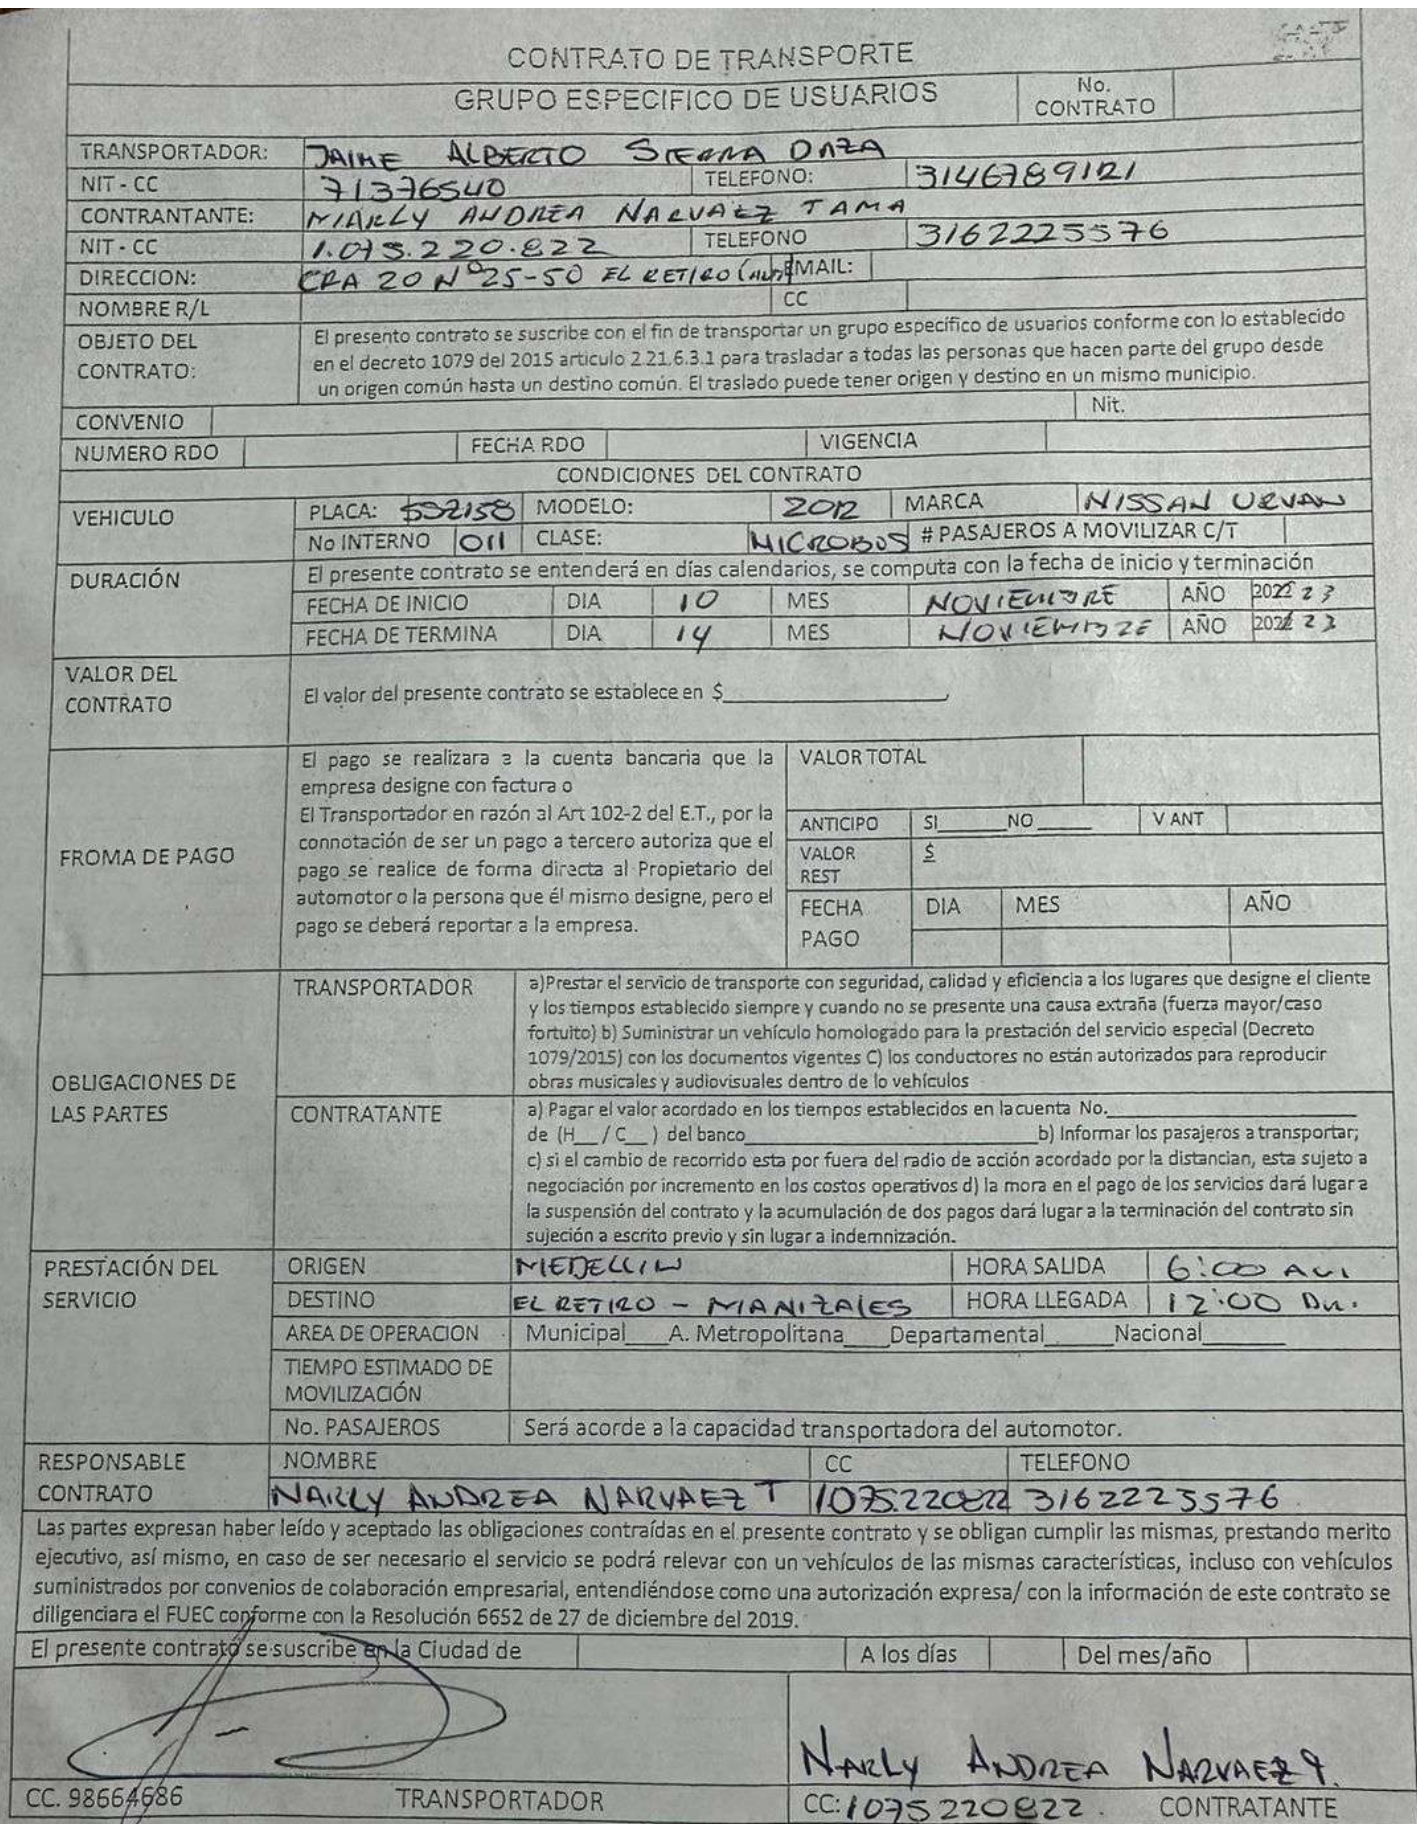 CONTRATO DE TRANSPORTE
GRUPO ESPECIFICO DE USUARIOS No. CONTRATO
TRANSPORTADOR: JAIME ALBERTO SIERRA DAZA
NIT - CC 71376540 TELEFONO: 3146789121
CONTRANTANTE: MARLY ANDREA NARVAEZ TAMA
NIT - CC 1.075.220.822 TELEFONO 3162225576
DIRECCION: CRA 20 Nº 25-50 EL RETIRO EMAIL:
NOMBRE R/L CC
OBJETO DEL CONTRATO: El presento contrato se suscribe con el fin de transportar un grupo específico de usuarios conforme con lo establecido
en el decreto 1079 del 2015 articulo 2.21.6.3.1 para trasladar a todas las personas que hacen parte del grupo desde
un origen común hasta un destino común. El traslado puede tener origen y destino en un mismo municipio.
CONVENIO Nit.
NUMERO RDO FECHA RDO VIGENCIA
CONDICIONES DEL CONTRATO
VEHICULO PLACA: 2158 MODELO: 2012 MARCA NISSAN URVAN
No INTERNO 011 CLASE: MICROBUS # PASAJEROS A MOVILIZAR C/T
DURACIÓN El presente contrato se entenderá en días calendarios, se computa con la fecha de inicio y terminación
FECHA DE INICIO DIA 10 MES NOVIEMBRE AÑO 2022 23
FECHA DE TERMINA DIA 14 MES NOVIEMBRE AÑO 2022 23
VALOR DEL CONTRATO El valor del presente contrato se establece en $
FROMA DE PAGO El pago se realizara a la cuenta bancaria que la
empresa designe con factura o
El Transportador en razón al Art 102-2 del E.T., por la
connotación de ser un pago a tercero autoriza que el
pago se realice de forma directa al Propietario del
automotor o la persona que él mismo designe, pero el
pago se deberá reportar a la empresa.
VALOR TOTAL
ANTICIPO SI______NO______ V ANT
VALOR REST $
FECHA PAGO DIA MES AÑO
OBLIGACIONES DE LAS PARTES
TRANSPORTADOR a)Prestar el servicio de transporte con seguridad, calidad y eficiencia a los lugares que designe el cliente
y los tiempos establecido siempre y cuando no se presente una causa extraña (fuerza mayor/caso
fortuito) b) Suministrar un vehículo homologado para la prestación del servicio especial (Decreto
1079/2015) con los documentos vigentes C) los conductores no están autorizados para reproducir
obras musicales y audiovisuales dentro de lo vehículos
CONTRATANTE a) Pagar el valor acordado en los tiempos establecidos en la cuenta No.
de (H__ / C__ ) del banco____________________b) Informar los pasajeros a transportar;
c) si el cambio de recorrido esta por fuera del radio de acción acordado por la distancian, esta sujeto a
negociación por incremento en los costos operativos d) la mora en el pago de los servicios dará lugar a
la suspensión del contrato y la acumulación de dos pagos dará lugar a la terminación del contrato sin
sujeción a escrito previo y sin lugar a indemnización.
PRESTACIÓN DEL SERVICIO
ORIGEN MEDELLIN HORA SALIDA 6:00 AM
DESTINO EL RETIRO - MANIZALES HORA LLEGADA 12:00
AREA DE OPERACION Municipal___A. Metropolitana____Departamental_____Nacional______
TIEMPO ESTIMADO DE MOVILIZACIÓN
No. PASAJEROS Será acorde a la capacidad transportadora del automotor.
RESPONSABLE CONTRATO NOMBRE CC TELEFONO
NARLY ANDREA NARVAEZ T 1075.220822 3162225576
Las partes expresan haber leído y aceptado las obligaciones contraídas en el presente contrato y se obligan cumplir las mismas, prestando merito
ejecutivo, así mismo, en caso de ser necesario el servicio se podrá relevar con un vehículos de las mismas características, incluso con vehículos
suministrados por convenios de colaboración empresarial, entendiéndose como una autorización expresa/ con la información de este contrato se
diligenciara el FUEC conforme con la Resolución 6652 de 27 de diciembre del 2019.
El presente contrato se suscribe en la Ciudad de A los días Del mes/año
NARLY ANDREA NARVAEZ T.
CC. 98664686 TRANSPORTADOR CC: 1075220822. CONTRATANTE